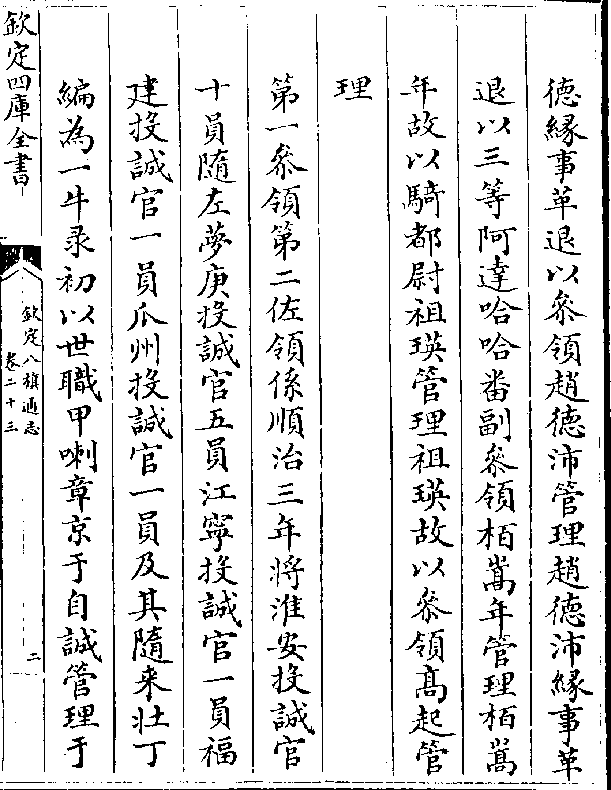 德緣事革退以叅領趙德沛管理趙德沛緣事革
退以三等阿達哈哈番副叅領栢嵩年管理栢嵩
年故以騎都尉祖瑛管理祖瑛故以叅領髙起管
理
第一叅領第二佐領係順治三年將淮安投誠官
十員随左夢庚投誠官五員江寧投誠官一員福
建投誠官一員瓜州投誠官一員及其隨来壮丁
編為一牛录初以世職甲喇章京于自誠管理于
欽定四庫全書
欽定八旗通志
卷二十三
二